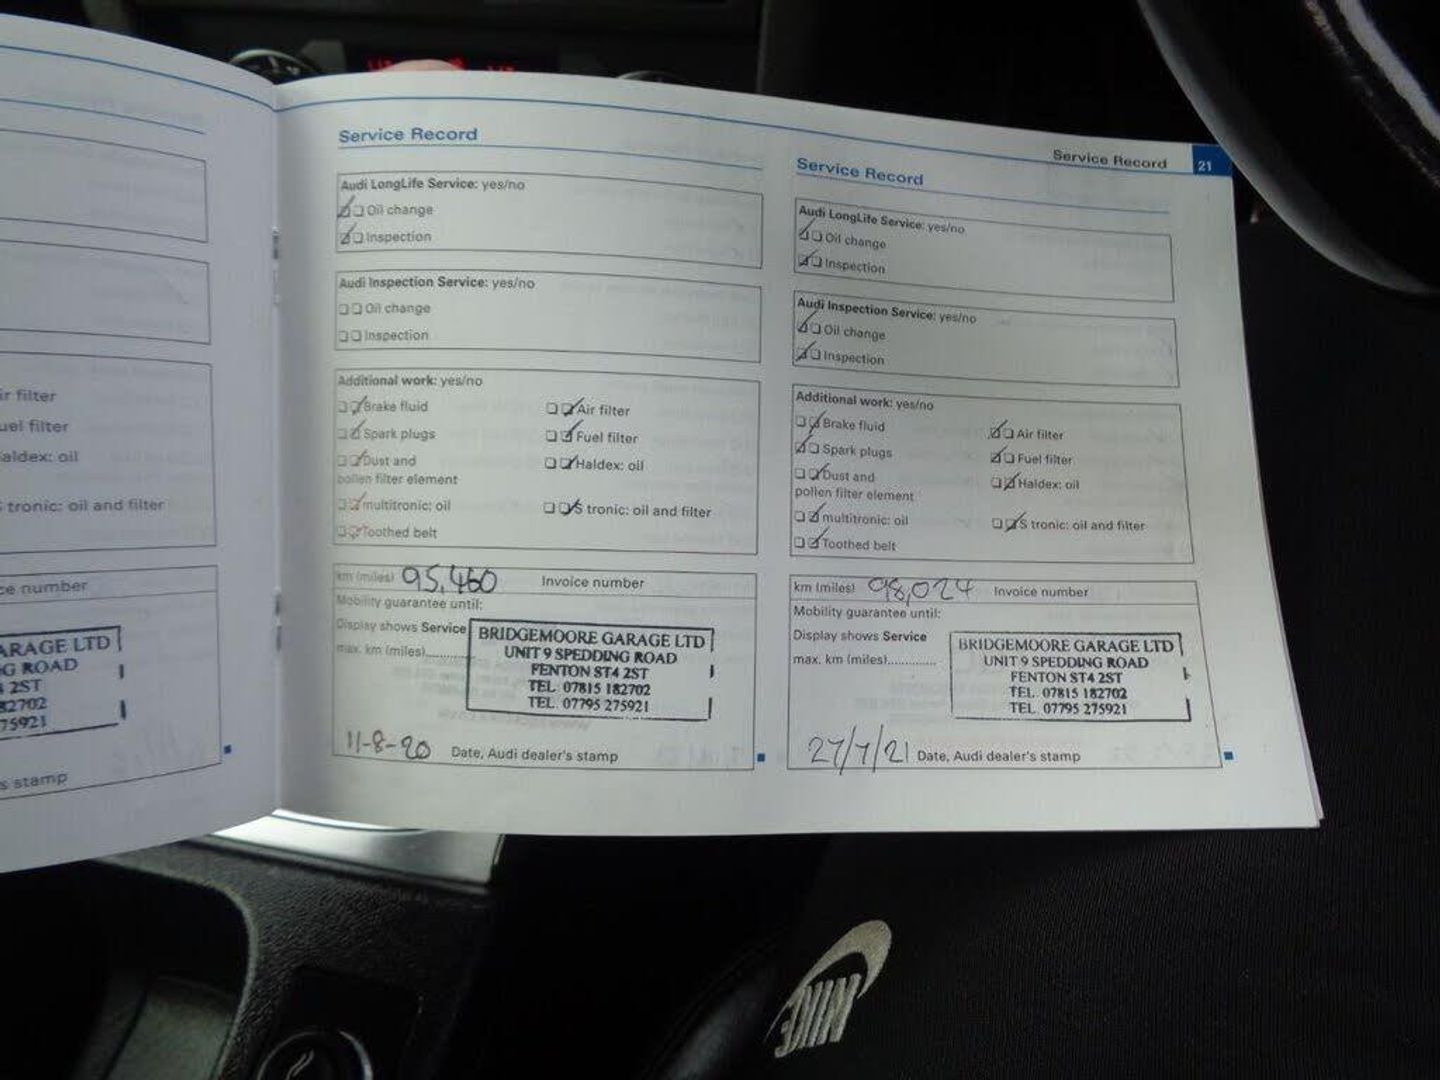 ir filter
uel filter
aldex: oil
tronic: oil and filter
ce number
ARAGE LTD
G ROAD
2ST
82702
75921
s stamp
Service Record
Audi LongLife Service: yes/no
Oil change
Inspection
Audi Inspection Service: yes/no
Oil change
Inspection
Additional work: yes/no
Brake fluid Air filter
Spark plugs Fuel filter
Dust and Haldex: oil
pollen filter element
multitronic: oil S tronic: oil and filter
Toothed belt
km (miles) 95,460 Invoice number
Mobility guarantee until:
Display shows Service
max. km (miles)..........
BRIDGEMOORE GARAGE LTD
UNIT 9 SPEDDING ROAD
FENTON ST4 2ST
TEL. 07815 182702
TEL. 07795 275921
11-8-20 Date, Audi dealer's stamp
Service Record 21
Service Record
Audi LongLife Service: yes/no
Oil change
Inspection
Audi Inspection Service: yes/no
Oil change
Inspection
Additional work: yes/no
Brake fluid Air filter
Spark plugs Fuel filter
Dust and Haldex: oil
pollen filter element
multitronic: oil S tronic: oil and filter
Toothed belt
km (miles) 98,024 Invoice number
Mobility guarantee until:
Display shows Service
max. km (miles).............
BRIDGEMOORE GARAGE LTD
UNIT 9 SPEDDING ROAD
FENTON ST4 2ST
TEL. 07815 182702
TEL. 07795 275921
27/7/21 Date, Audi dealer's stamp